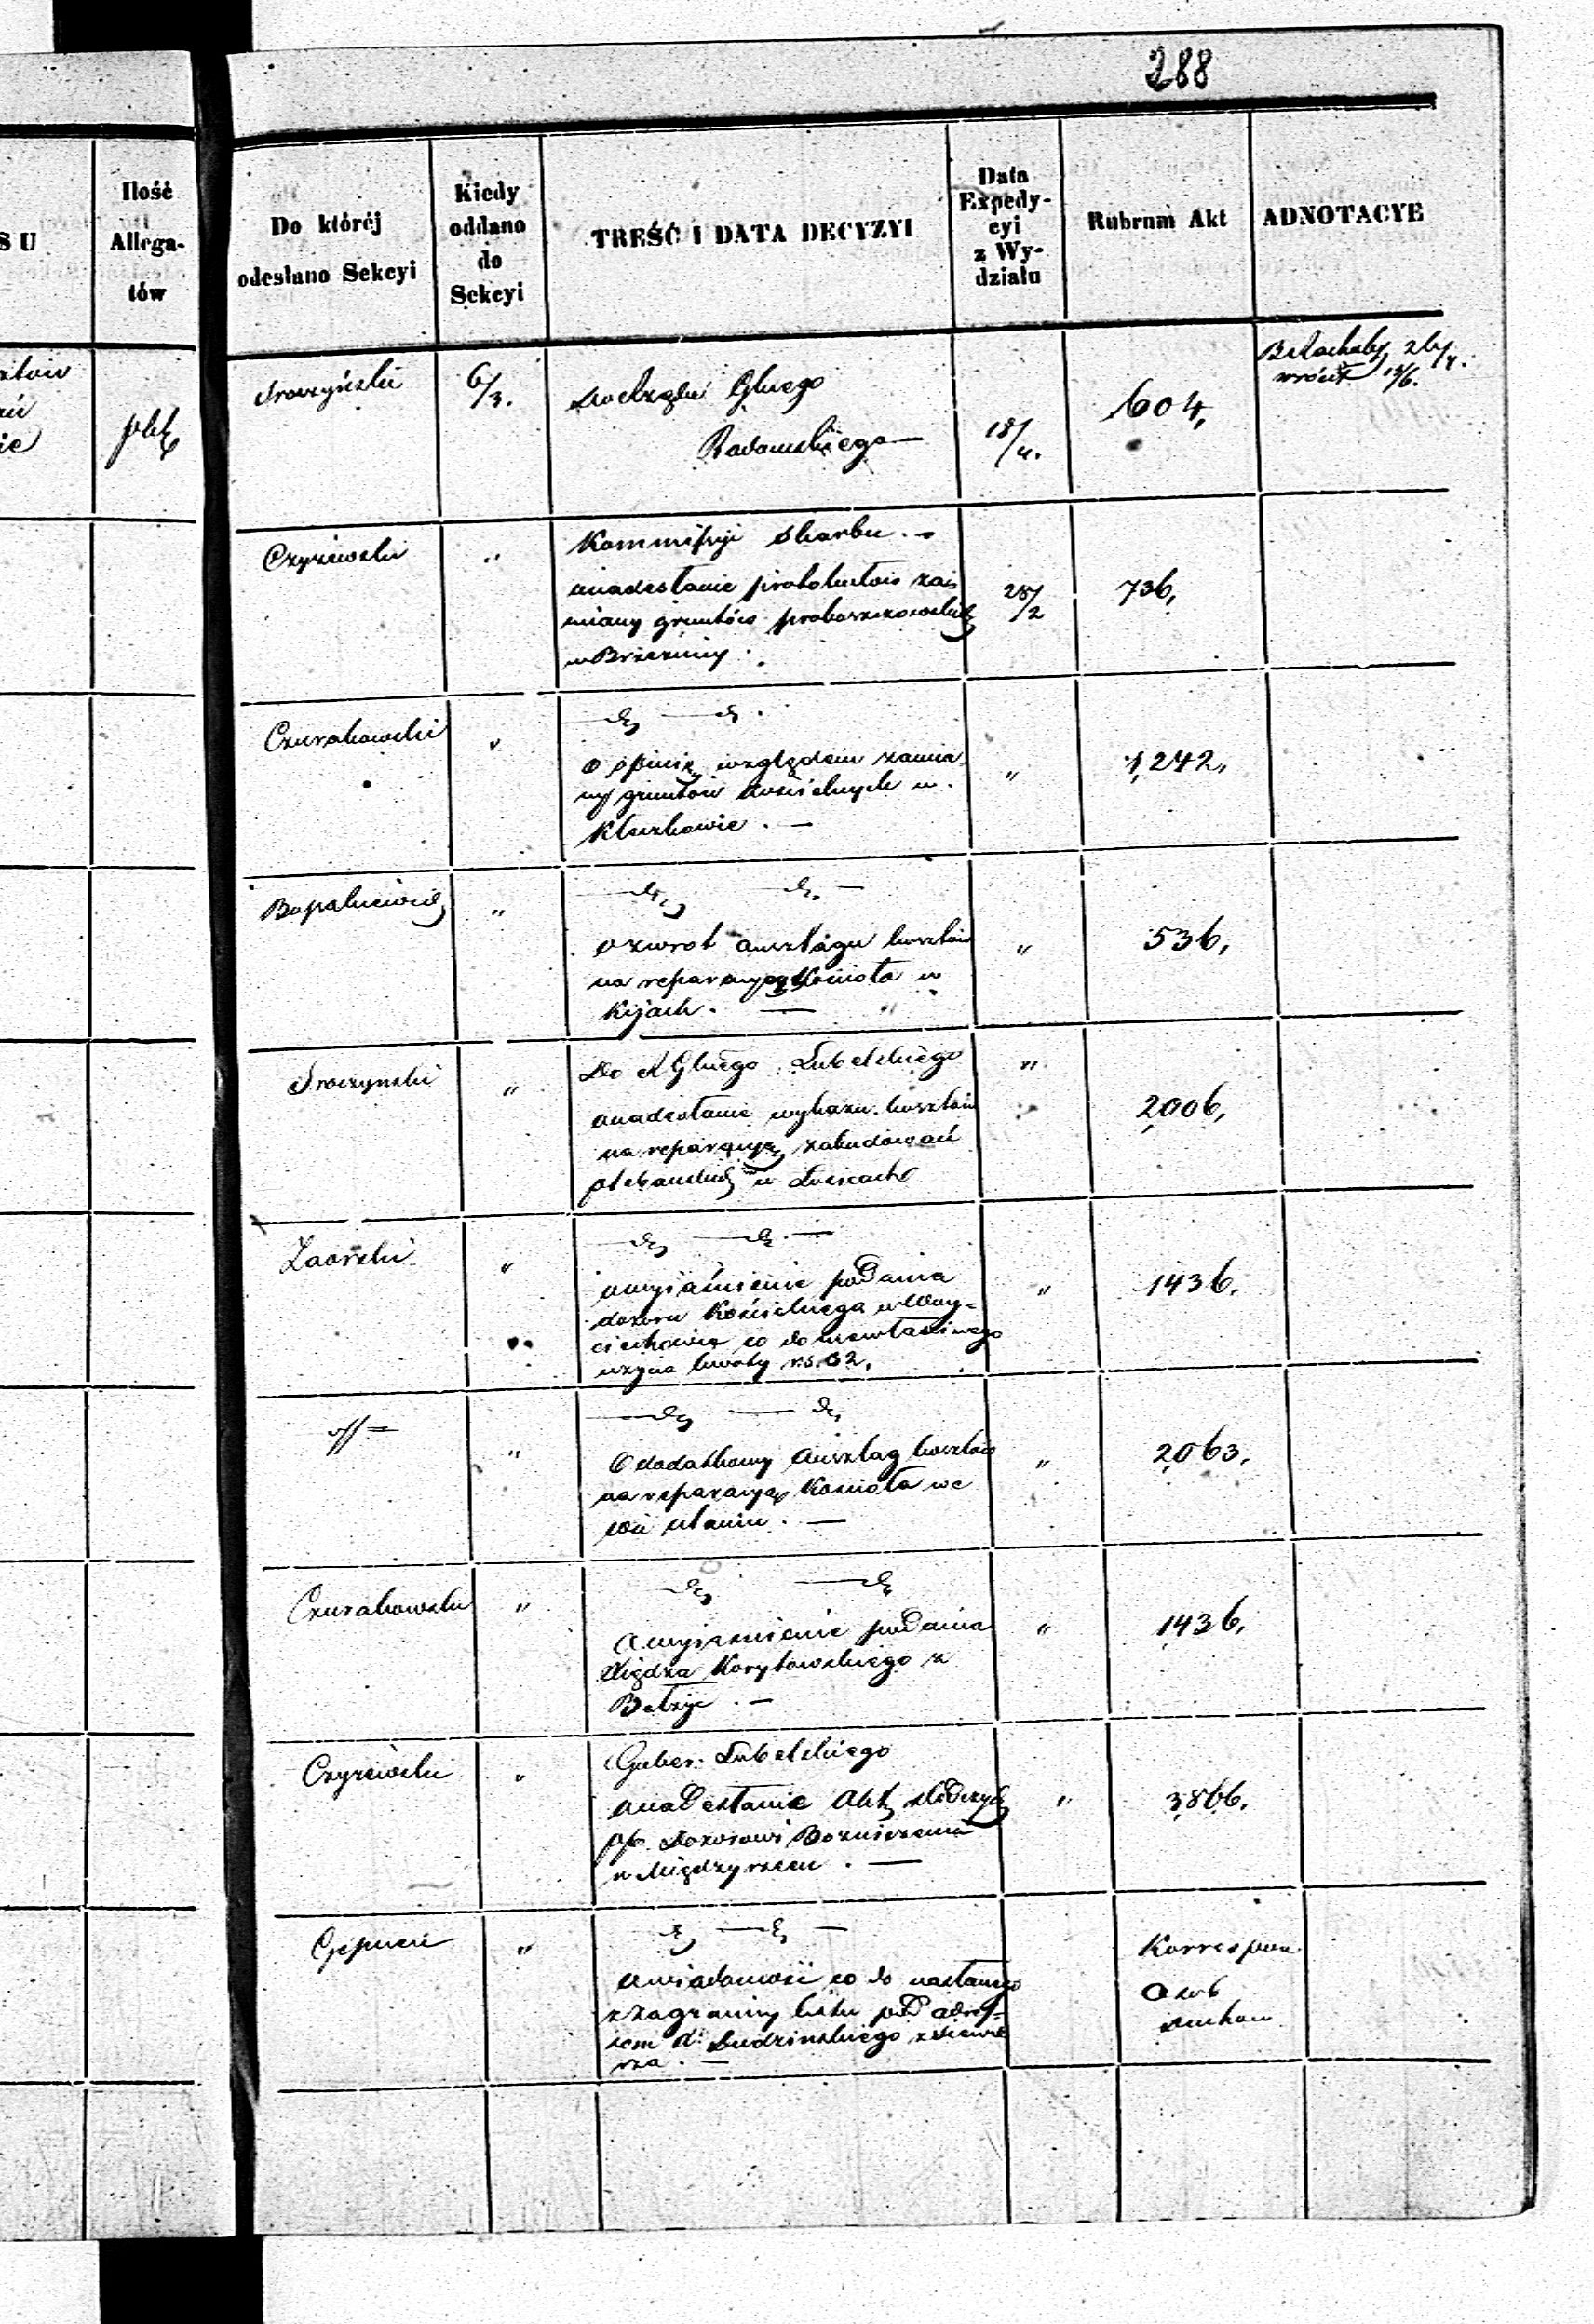 288
S U
Ilość
Allega-
tów
Do któréj
odesłano Sekcyi
Kiedy
oddano
do
Sekcyi
TREŚĆ I DATA DECYZYI
Data
Expedy-
cyi
z Wy-
działu
Rubrum Akt
ADNOTACYE
Sroczyński
6/3.
do Rządu Głnego
Radomskiego —
18/4.
604,
26/4.
wrócił 13/6.
Czyżewski
"
Kommissyi Skarbu. —
o nadesłanie protokułów za-
miany gruntów proboszczowskich
w Brzeziny.
28/2
736,
Czurakowski
"
— dº — dº.
o opinię względem zamia-
ny gruntów kościelnych w
Kluczkowie. —
"
1,242,
"
— dº — dº —
o zwrot anszlagu kosztów
na reparacyą Kościoła w
Kijach. —
"
536,
Sroczynski
"
Do R Głnego Lubelskiego
o nadesłanie wykazu kosztów
na reparacyą zabudowań
plebańskich w Łosicach
"
2,006,
Zaorski
"
— dº — dº —
o wyjaśnienie podania
dozoru Kościelnego w Woy-
ciechowie co do niewłaściwego
użycia kwoty rs. 62,
"
1436.
"
— dº — dº
O dodatkowy Anszlag kosztów
na reparacyą Kościoła we
wsi Ulaniu. —
"
2,063.
Czurakowski
"
— dº — dº
O wyjaśnienie podania
Xiędza Korytowskiego z
Bełżyc. —
"
1436,
Czyżewski
"
Guber. Lubelskiego
o nadesłanie Akt
pko Dozorowi Bożniczemu
w Międzyrzecu. —
"
3,866.
"
— dº — dº —
o wiadomość co do nasłanego
z zagranicy listu pod adres-
sem Budzińskiego
rza. —
Korrespon
Osob